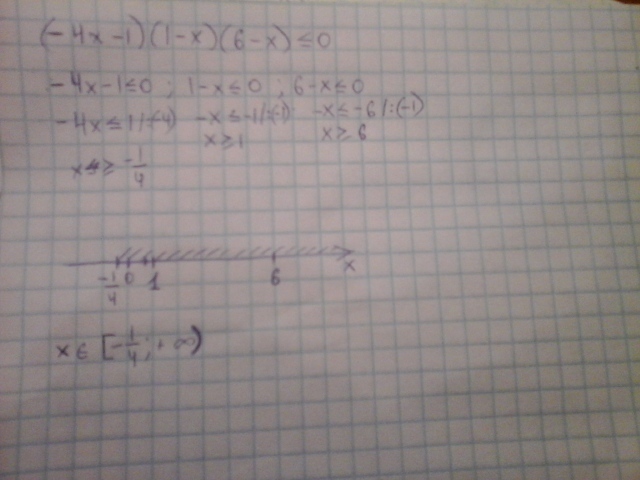 (-4x-1)(1-x)(6-x)≤0
-4x-1≤0 ; 1-x≤0 ; 6-x≤0
-4x≤1/:(-4) -x≤-1/:(-1) -x≤-6/:(-1)
x≥1 x≥6
x≥-1/4
-1/4 0 1 6 x
x∈[-1/4;+∞)